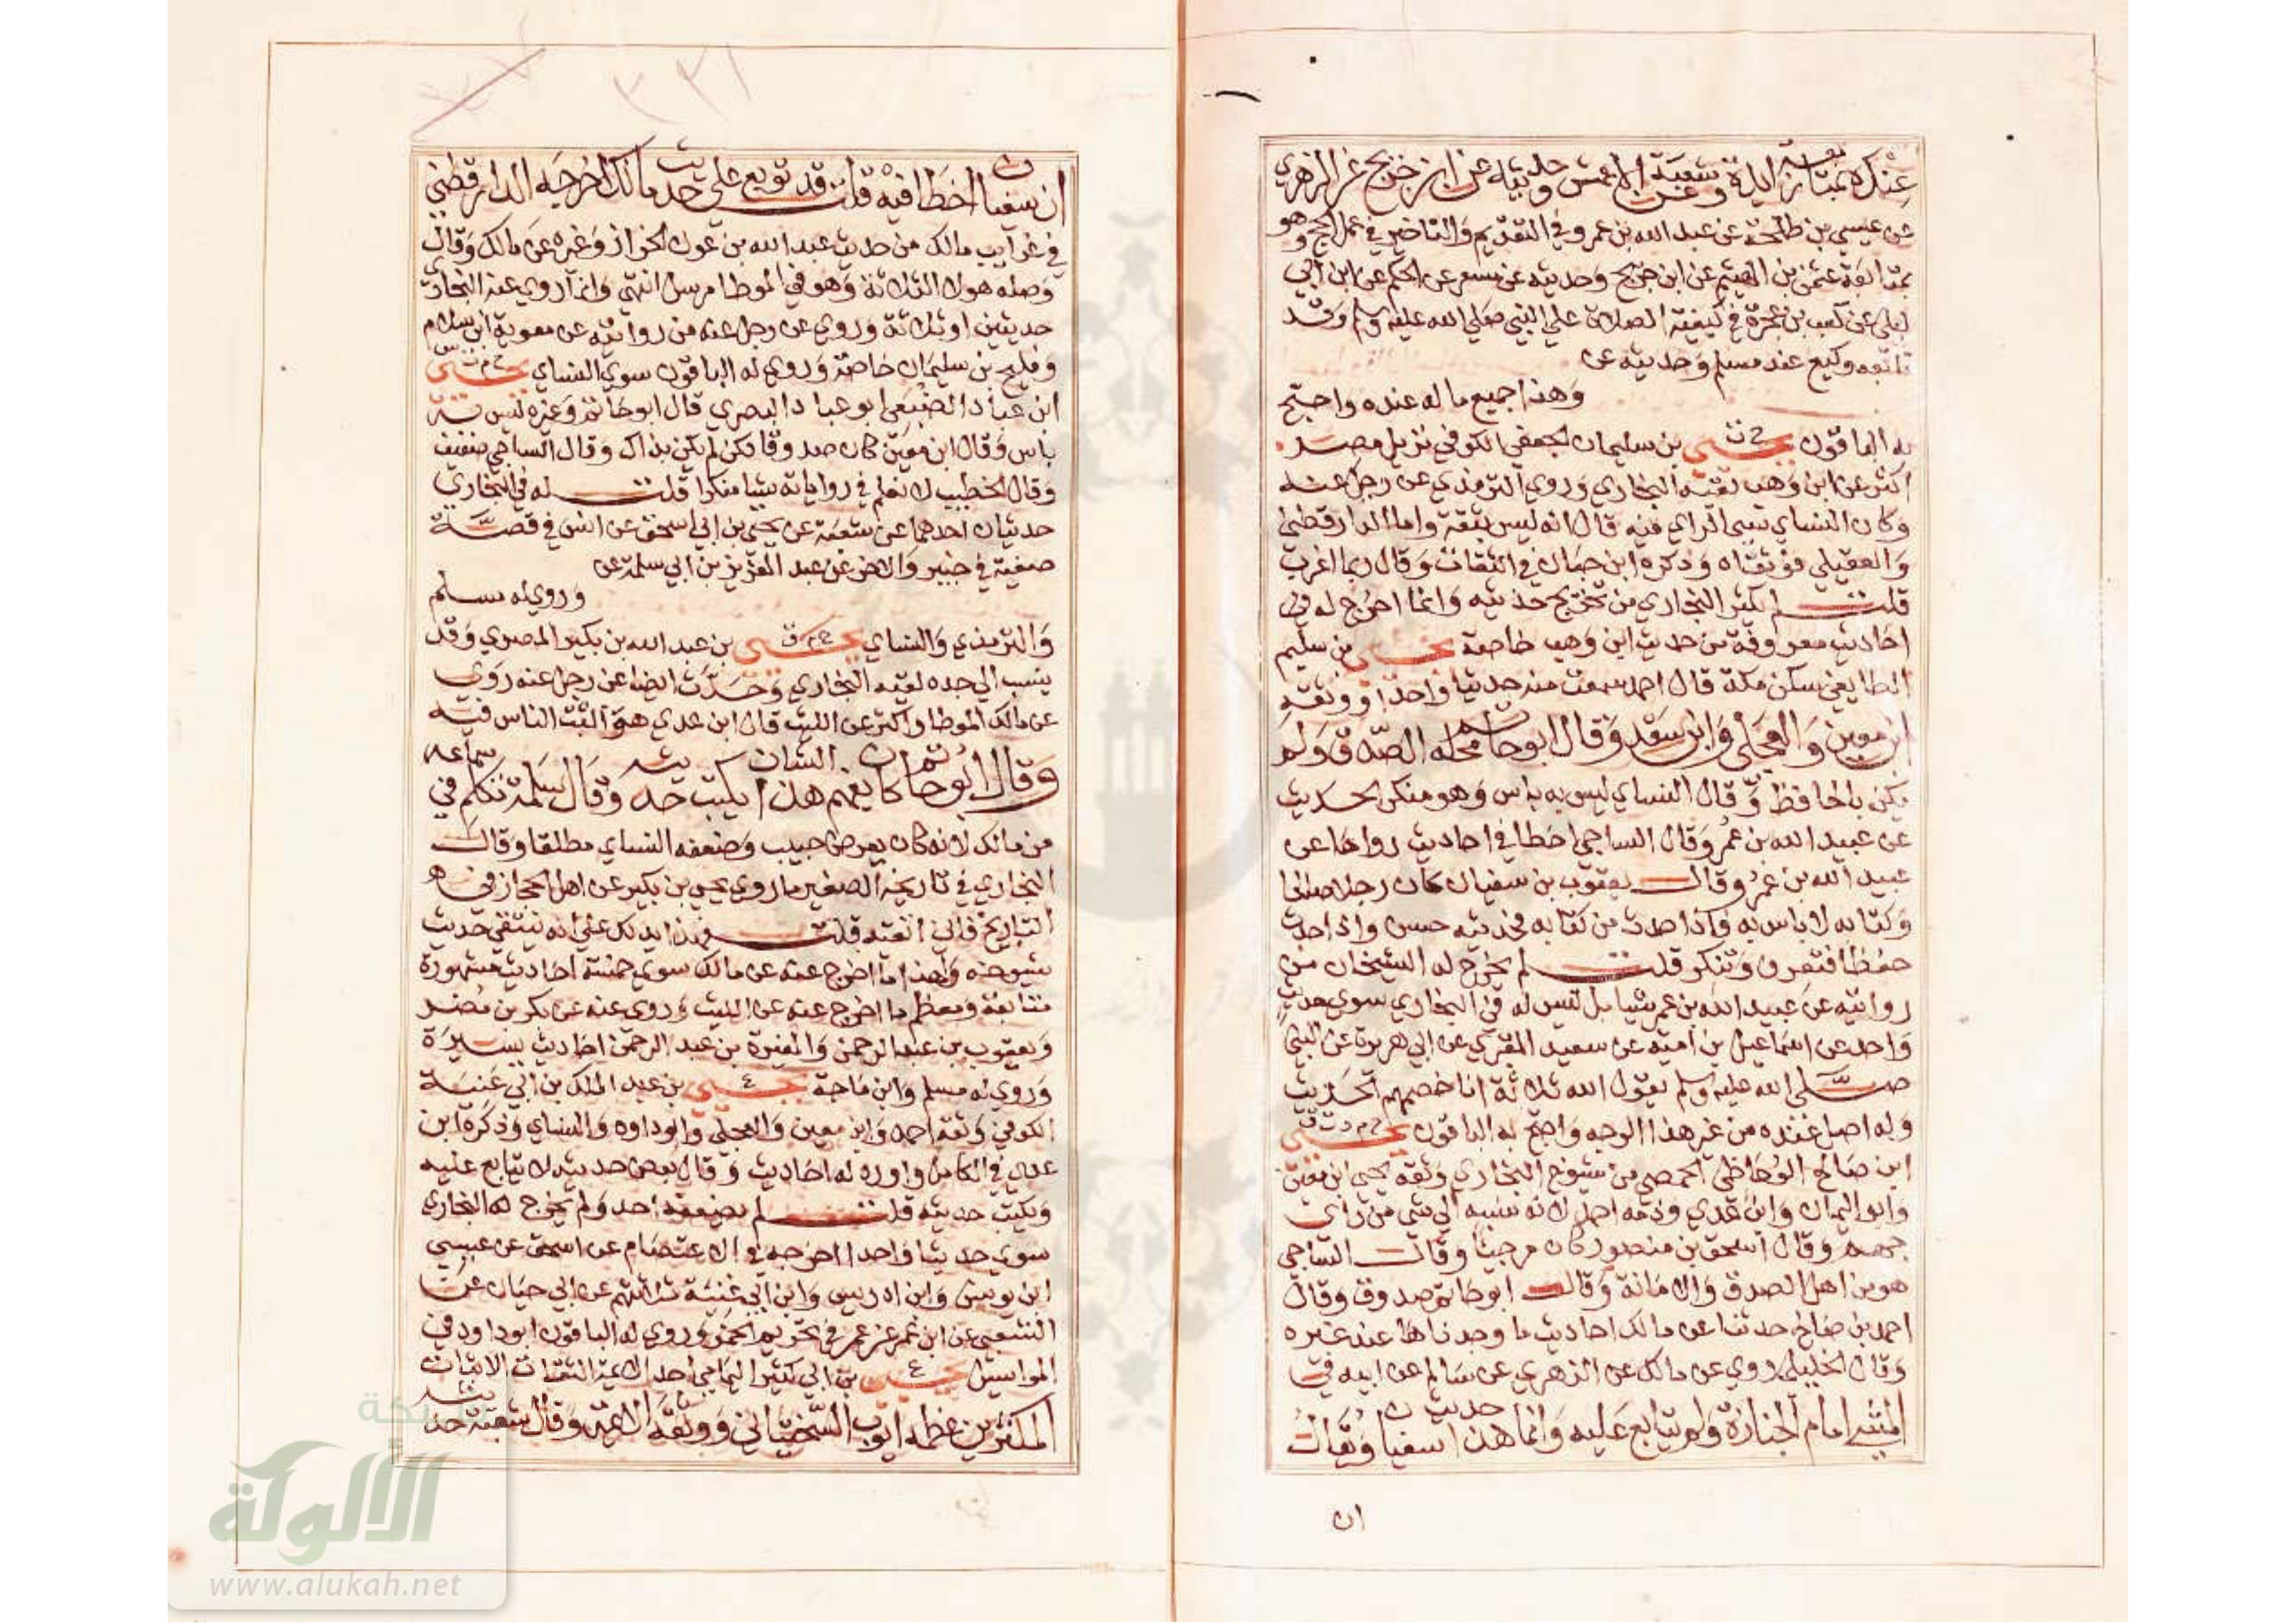 عنده بمتابعة زائدة وشعبة عن الاعمش وحديثه عن ابن جريج عن الزهري
عن عيسي بن طلحة عن عبد الله بن عمرو في التقديم والتاخير في عمل الحج وهو
بمتابعة عثمن بن الهيثم عن ابن جريج وحديثه عن مسعر عن الحكم عن ابن ابي
ليلي عن كعب بن عجرة في كيفية الصلاة علي النبي صلي الله عليه وسلم وقد
تابعه وكيع عند مسلم وحديثه عن
وهذا جميع ما له عنده واحتج
به الباقون خ ت يحيي بن سليمان الجعفي الكوفي نزيل مصر
اكثر عن ابن وهب لقيه البخاري وروي الترمذي عن رجل عنه
وكان النساي سيي الراي فيه قال انه ليس بثقة واما الدارقطني
والعقيلي فوثقاه وذكره ابن حبان في الثقات وقال ربما اغرب
قلت لم يكثر البخاري من تخريج حديثه وانما اخرج له في
احاديث معروفة من حديث ابن وهب خاصة يحيي بن سليم
الطايفي سكن مكة قال احمد سمعت منه حديثا واحدا ووثقه
ابن معين والعجلي وابن سعد وقال ابو حاتم محله الصدق ولم
يكن بالحافظ وقال النساي ليس به باس وهو منكر الحديث
عن عبيد الله بن عمر وقال الساجي اخطا في احاديث رواها عن
عبيد الله بن عمر وقال يعقوب بن سفيان كان رجلا صالحا
وكتابه لا باس به واذا حدث من كتابه فحديثه حسن واذا حدث
حفظا فتعرف وتنكر قلت لم يخرج له الشيخان من
روايته عن عبيد الله بن عمر شيا بل ليس له في البخاري سوي حديث
واحد عن اسماعيل بن امية عن سعيد المقبري عن ابي هريرة عن النبي
صلي الله عليه وسلم يقول الله ثلاثة انا خصمهم الحديث
وله اصل عنده من غير هذا الوجه واحتج به الباقون خ م د ت ق يحيي
ابن صالح الوحاظي الحمصي من شيوخ البخاري وثقه يحيي ابن معين
وابو اليمان وابن عدي وذمه احمد لانه نسبه الي شي من راي
جهم وقال اسحق بن منصور كان مرجيا وقال الساجي
هو من اهل الصدق والامانة وقال ابو حاتم صدوق وقال
احمد بن صالح حدثنا عن مالك احاديث ما وجدناها عند غيره
وقال الخليلي روي عن مالك عن الزهري عن سالم عن ابيه في
المشي امام الجنازة ولم يتابع عليه وانما هذا حديث سفيان ويقال
ان
٣٣١
ان سفيان اخطا فيه قلت قد توبع علي حديث مالك اخرجه الدارقطني
في غرايب مالك من حديث عبد الله بن عون الخراز وغيره عن مالك وقال
وصله هولا الثلاثة وهو في الموطا مرسل انتهي وانما روي عنه البخاري
حديثين او ثلاثة وروي عن رجل عنه من روايته عن معوية ابن سلام
وفليح بن سليمان خاصة وروي له الباقون سوي النساي خ م ت س يحيي
ابن عباد الضبعي ابو عباد البصري قال ابو حاتم وغيره ليس به
باس وقال ابن معين كان صدوقا ولكن لم يكن بذاك وقال الساجي ضعيف
وقال الخطيب لا نعلم في رواياته شيا منكرا قلت له في البخاري
حديثان احدهما عن شعبة عن يحيي بن ابي اسحق عن انس في قصة
صفية في خيبر والاخر عن عبد العزيز بن ابي سلمة عن
وروي له مسلم
والترمذي والنساي خ م ق يحيي بن عبد الله بن بكير المصري وقد
ينسب الي جده لقيه البخاري وحدث ايضا عن رجل عنه روي
عن مالك الموطا واكثر عن الليث قال ابن عدي هو اثبت الناس فيه
وقال ابو حاتم كان يفهم هذا الشان يكتب حديثه وقال مسلمة تكلم في سماعه
من مالك لانه كان بعرض حبيب وضعفه النساي مطلقا وقال
البخاري في تاريخه الصغير ما روي يحيي بن بكير عن اهل الحجاز في
التاريخ فاني اتقيه قلت فهذا يدلك علي انه ينتقي حديث
شيوخه ولهذا ما اخرج عنه عن مالك سوي خمسة احاديث مشهورة
متابعة ومعظم ما اخرج عنه عن الليث وروي عنه عن بكر بن مضر
ويعقوب بن عبد الرحمن والمغيرة بن عبد الرحمن احاديث يسيرة
وروي له مسلم وابن ماجة ع يحيي بن عبد الملك بن ابي غنية
الكوفي وثقه احمد وابن معين والعجلي وابو داود والنساي وذكره ابن
عدي في الكامل واورد له احاديث وقال بعض حديثه لا يتابع عليه
ويكتب حديثه قلت لم يضعفه احد ولم يخرج له البخاري
سوي حديثا واحدا اخرجه في الاعتصام عن اسحق عن عيسي
ابن يونس وابن ادريس وابن ابي غنية ثلاثتهم عن ابي حيان عن
الشعبي عن ابن عمر عن عمر في تحريم الخمر وروي له الباقون ابو داود في
المراسيل ع يحيي بن ابي كثير اليمامي احد الايمة الثقات الاثبات
المكثرين عظمه ايوب السختياني ووثقه الايمة وقال شعبة حديثه
شبكة
الألوكة
www.alukah.net